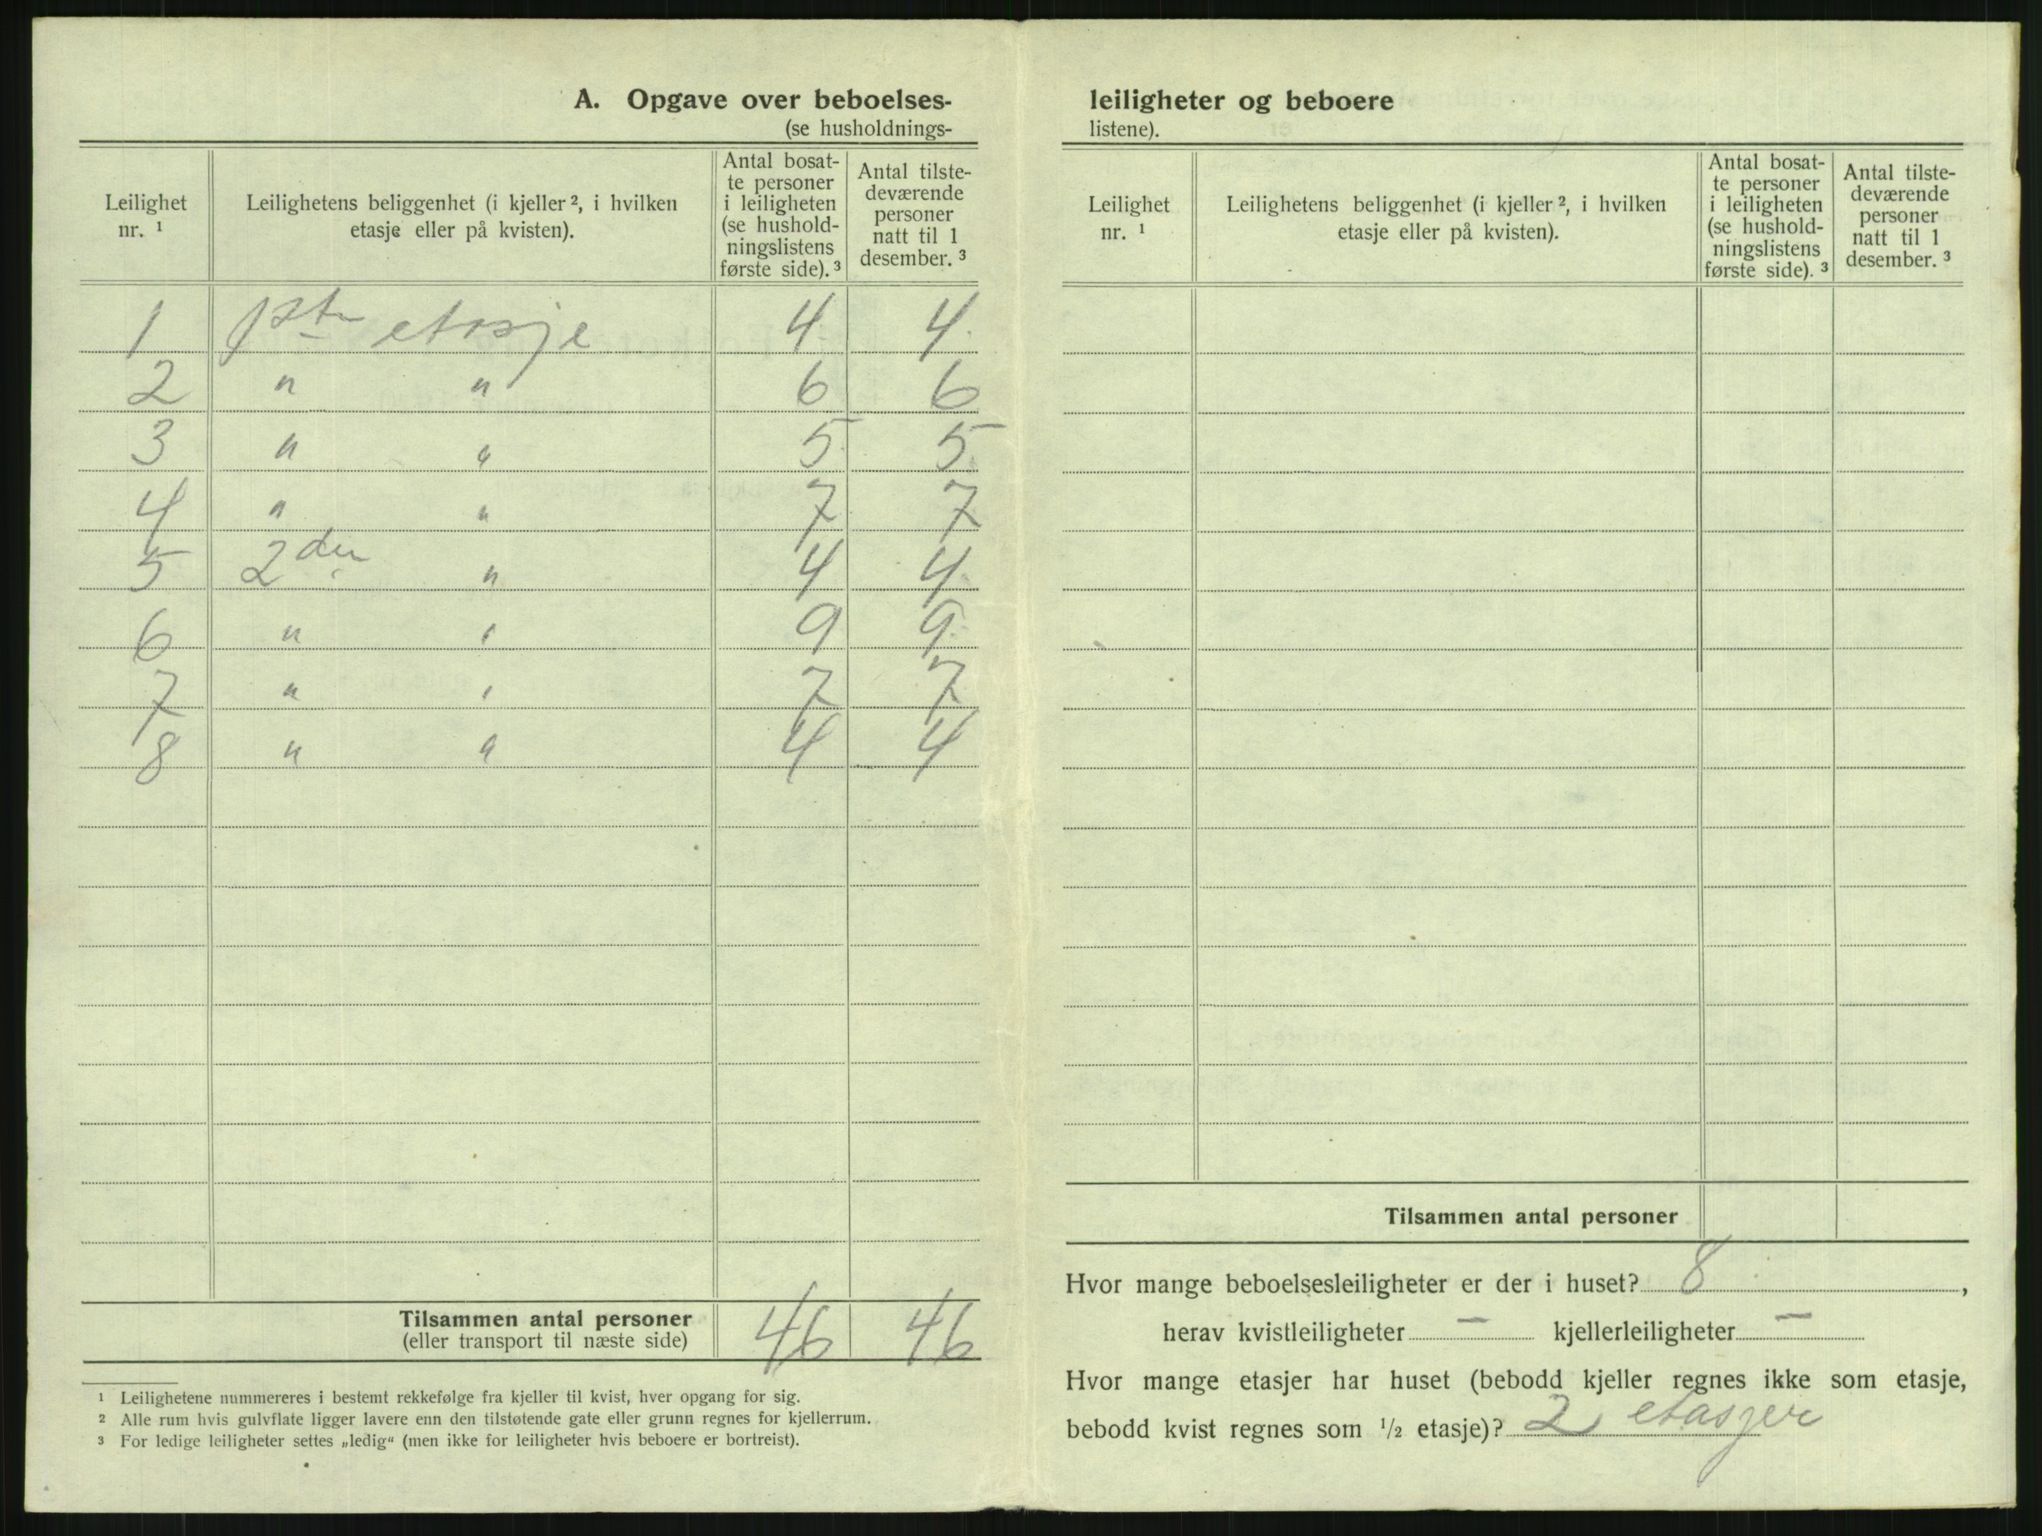 A. Opgave over beboelses-
(se husholdnings-
Leilighet nr. ¹ | Leilighetens beliggenhet (i kjeller ², i hvilken etasje eller på kvisten). | Antal bosat-te personer i leiligheten (se hushold-ningslistens første side). ³ | Antal tilste-deværende personer natt til 1 desember. ³
1 1ste etasje 4 4
2 " " 6 6
3 " " 5 5
4 " " 7 7
5 2den " 4 4
6 " " 9 9
7 " " 7 7
8 " " 4 4
Tilsammen antal personer 46 46
(eller transport til næste side)
¹ Leilighetene nummereres i bestemt rekkefølge fra kjeller til kvist, hver opgang for sig.
² Alle rum hvis gulvflate ligger lavere enn den tilstøtende gate eller grunn regnes for kjellerrum.
³ For ledige leiligheter settes „ledig“ (men ikke for leiligheter hvis beboere er bortreist).
leiligheter og beboere
listene).
Leilighet nr. ¹ | Leilighetens beliggenhet (i kjeller ², i hvilken etasje eller på kvisten). | Antal bosat-te personer i leiligheten (se hushold-ningslistens første side). ³ | Antal tilste-deværende personer natt til 1 desember. ³
Tilsammen antal personer
Hvor mange beboelsesleiligheter er der i huset? 8 ,
herav kvistleiligheter — kjellerleiligheter —
Hvor mange etasjer har huset (bebodd kjeller regnes ikke som etasje,
bebodd kvist regnes som ½ etasje)? 2 etasjer